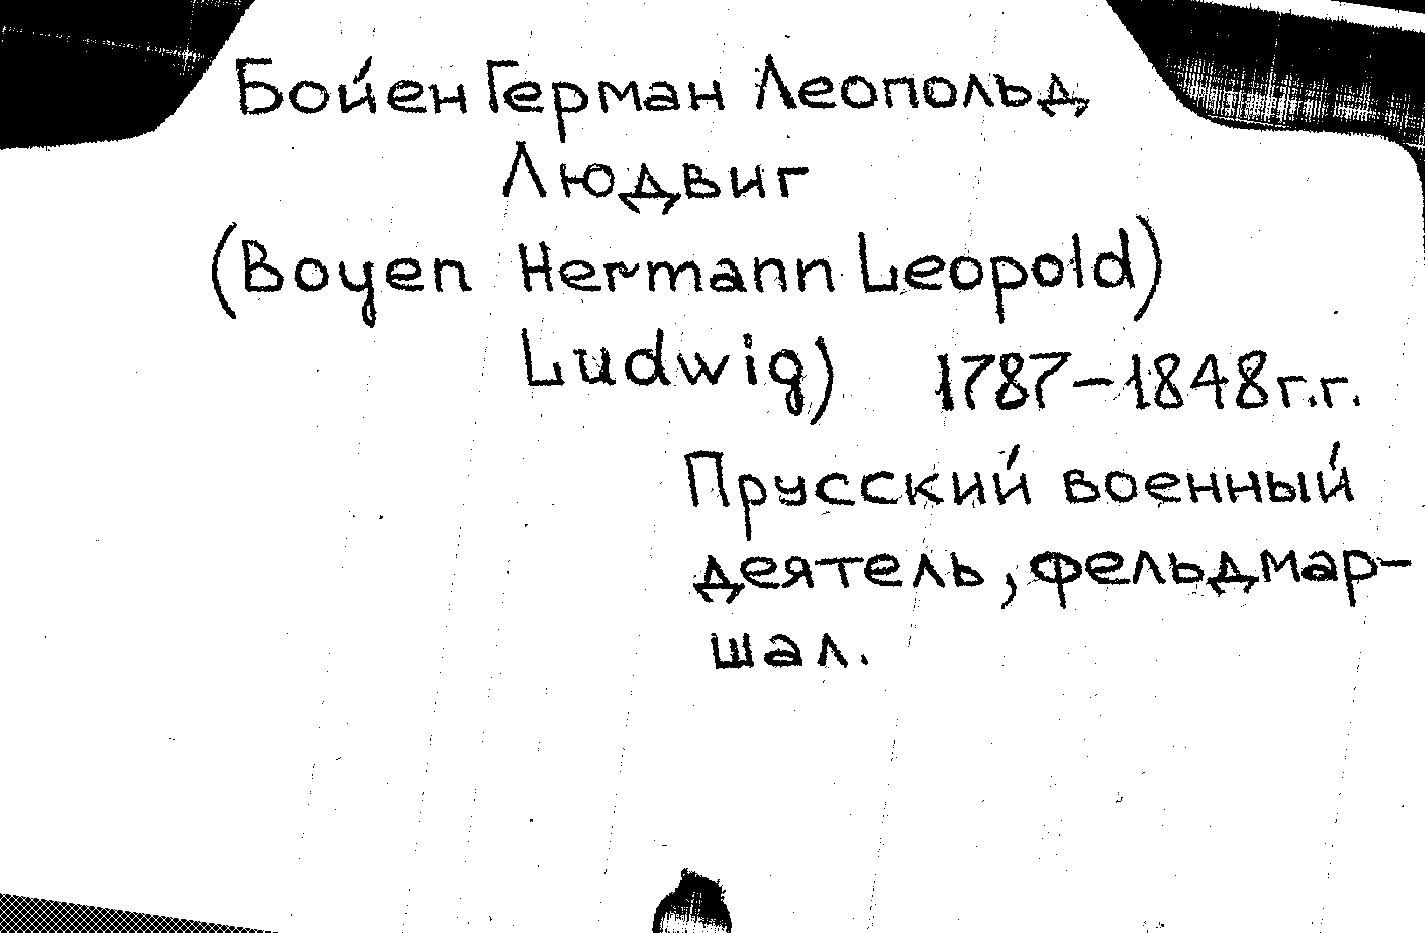 Бойен Герман Леопольд
Людвиг
(Boyen Hermann Leopold)
Ludwig) 1787-1848г.г.
Прусский военный
деятель, фельдмар-
шал.